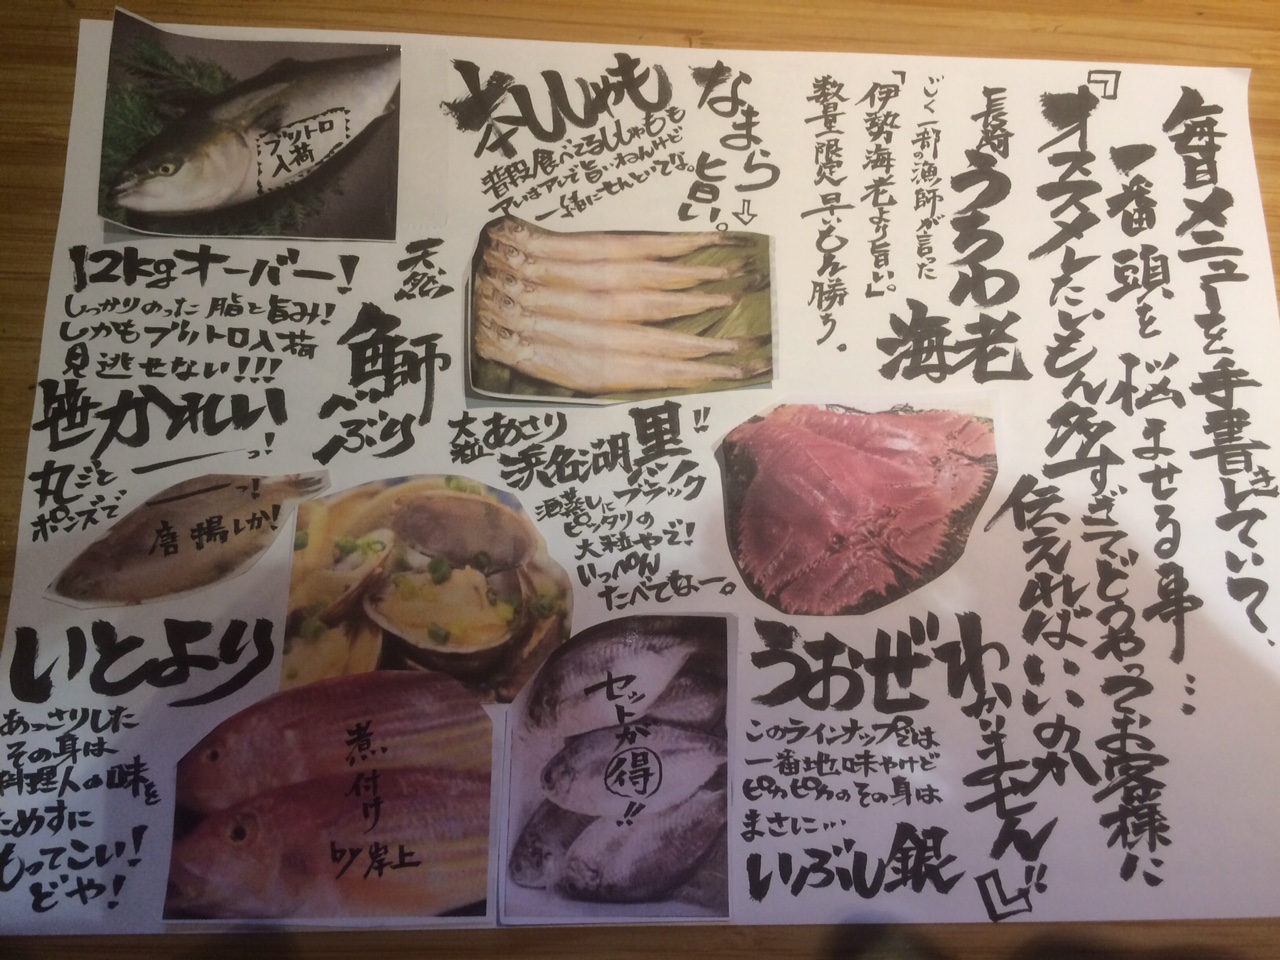 毎日メニューを手書きしていて、
一番頭を悩ませる事…
『オススメしたいもん多すぎてどうやってお客様に
伝えればいいのか
わかりません』!!
長崎
うちわ
海老
ごく一部の漁師が言った
「伊勢海老より旨い」。
数量限定早いもん勝ち。
なまら
旨い。
本ししゃも
普段食べてるししゃもも
アレはアレで旨いねんけど
一緒にせんといてな。
ブリトロ
入荷
天然
鰤
ぶり
12kgオーバー!
しっかりのった脂と旨み!
しかもブリトロ入荷
見逃せない!!!
笹かれい
丸ごと
ポンズで
ーっ!
ーっ!
唐揚しか!
大粒あさり
浜名湖
黒!!
ブラック
酒蒸しに
ピッタリの
大粒やで!
いっぺん
たべてなー。
いとより
あっさりした
その身は
料理人の味を
ためすに
もってこい!
どや!
煮付け
by岸上
セットが
得!!
うおぜ
このラインナップでは
一番地味やけど
ピカピカのその身は
まさに…
いぶし銀